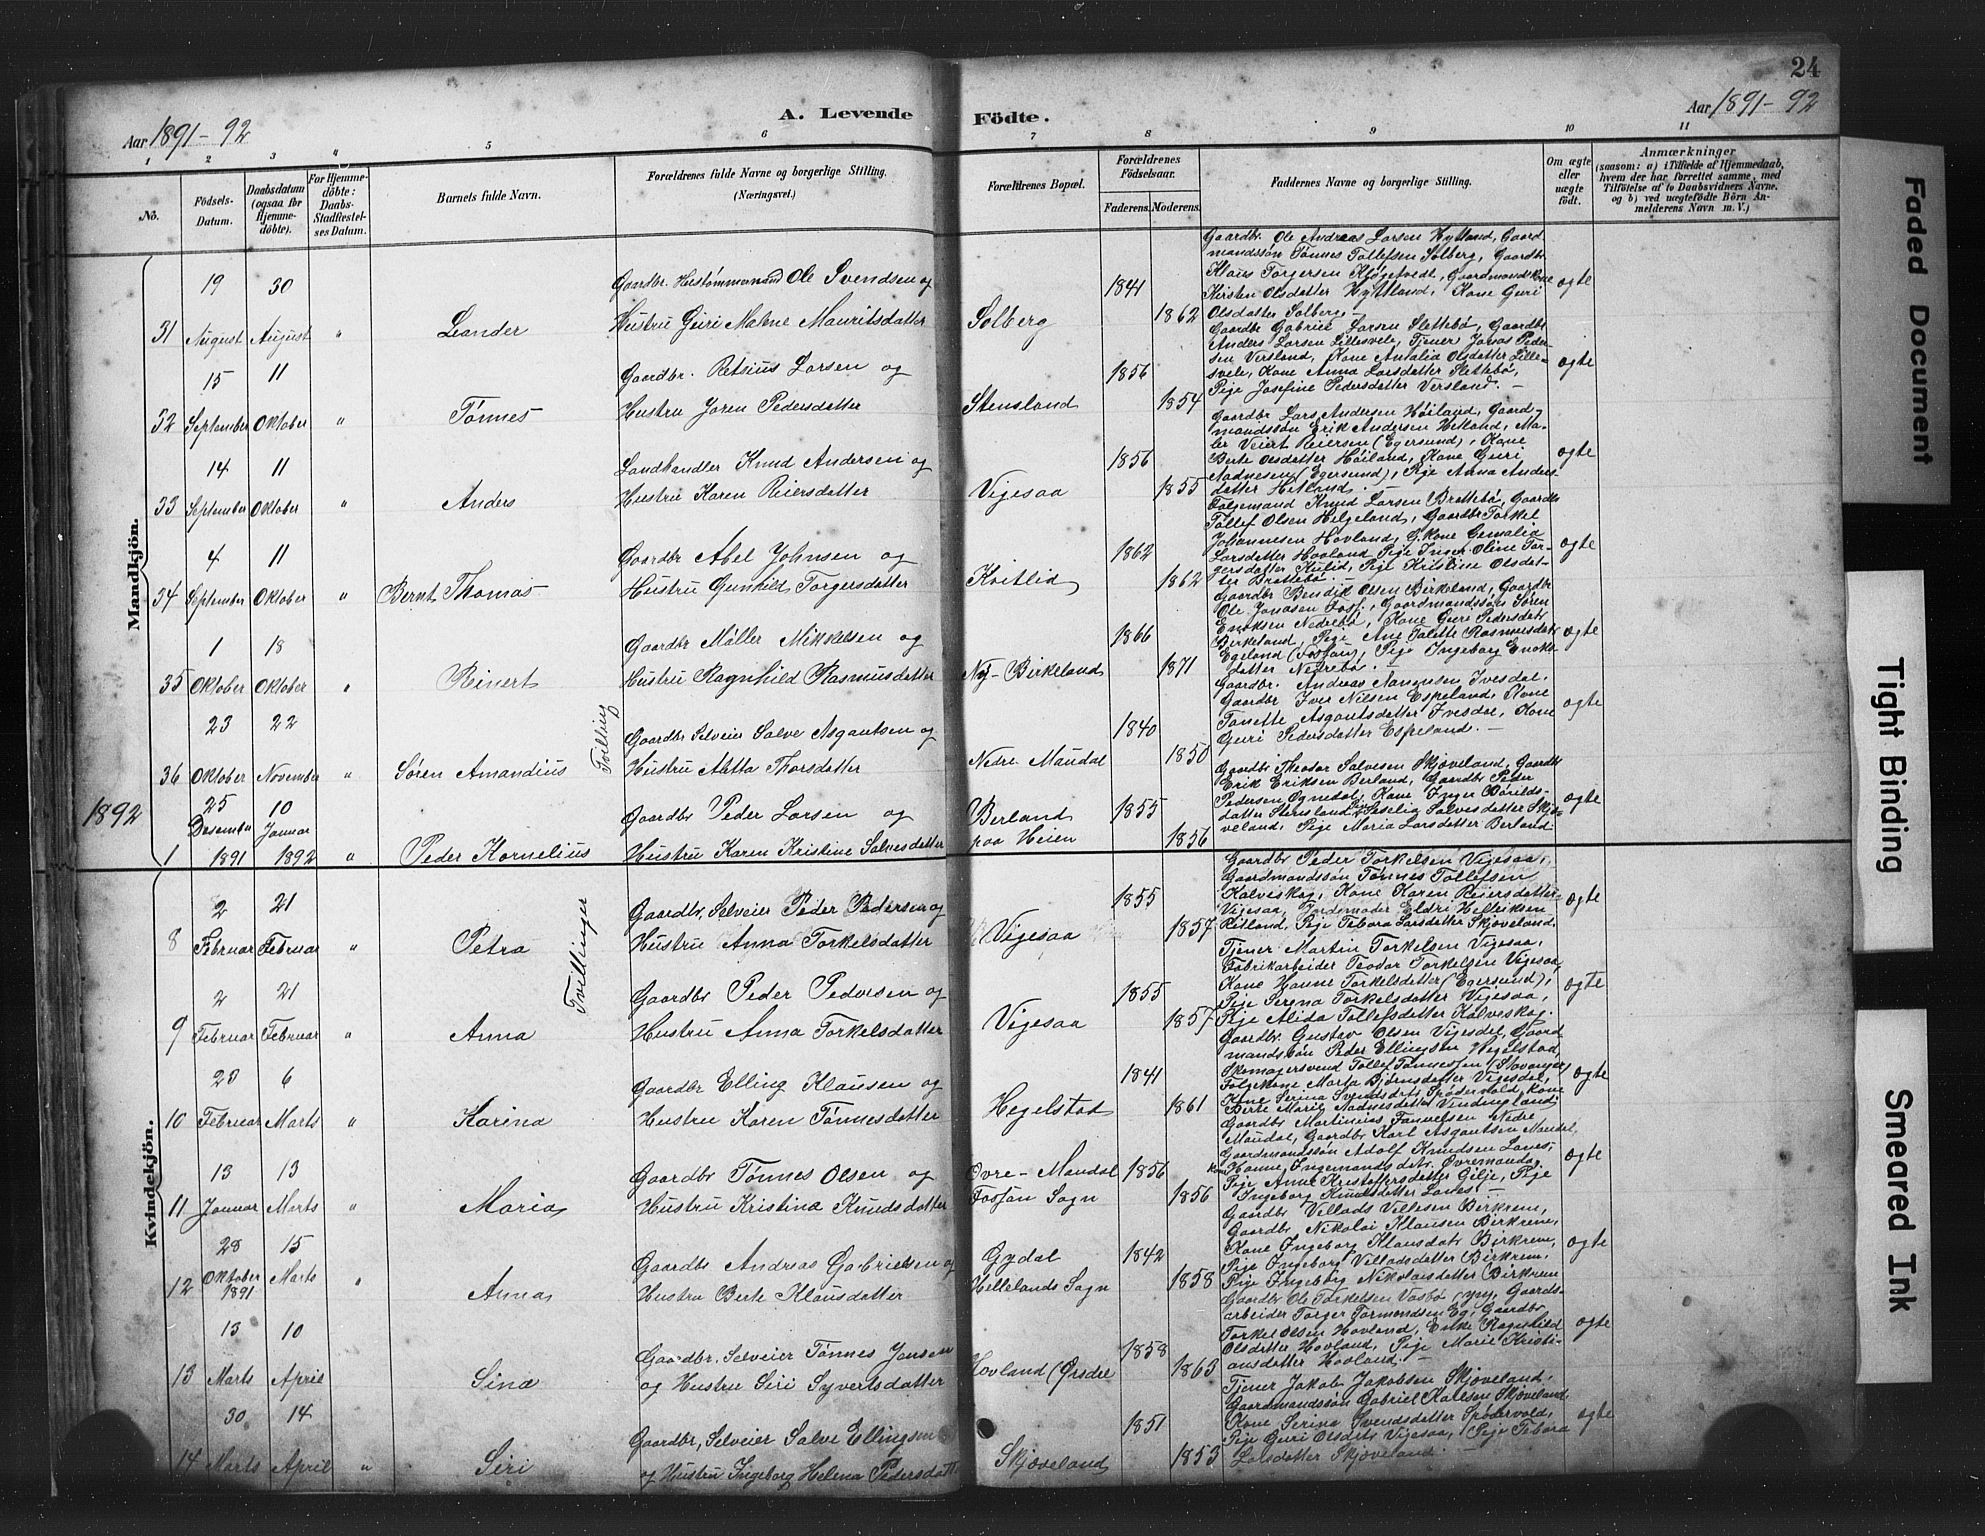 24
Aar 1891-92
A. Levende
Födte.
Aar 1891-92
1 2 3 4 5 6 7 8 9 10 11
No.
Födsels-
Datum.
Daabsdatum
(ogsaa for
Hjemme-
döbte).
For Hjemme-
döbte:
Daabs-
Stadfæstel-
ses Datum.
Barnets fulde Navn.
Forældrenes fulde Navne og borgerlige Stilling.
(Næringsvei.)
Forældrenes Bopæl.
Forældrenes
Födselsaar.
Faderens. Moderens.
Faddernes Navne og borgerlige Stilling.
Om ægte
eller
uægte
födt.
Anmærkninger
(saasom: a) i Tilfælde af Hjemmedaab,
hvem der har forrettet samme, med
Tilföielse af to Daabsvidners Navne.
og b) ved uægtefödte Börn An-
melderens Navn m. V.)
Mandkjön.
31
19
August
30
August
"
Leander
Gaardbr. Hustømmermand Ole Svendsen og
Hustru Guri Malene Mauritsdatter
Solberg
1841
1862
Gaardbr. Ole Andreas Larsen Hytland, Gaard-
mandssøn Tønnes Tollefsen Solberg, Gaardbr
Klaus Torgersen Kløgetvedt, Gaardmandskone
Kirsten Olsdatter Hytland, Kone Guri
Olsdatter Solberg.
ægte
32
15
September
11
Oktober
"
Tönnes
Gaardbr. Retsius Larsen og
Hustru Joren Pedersdatter
Stensland
1856
1854
Gaardbr Gabriel Larsen Slettebø, Gaardbr
Anders Larsen Lillesvele, Tjener Jonas Peder-
sen Versland, Kone Amalia Olsdatter Lille-
svele, Kone Anna Larsdatter Slettebø,
Pige Josefine Pedersdatter Versland. -
ægte
33
14
September
11
Oktober
"
Anders
Landhandler Knud Andersen og
Hustru Karen Reiersdatter
Vigesaa
1856
1855
Gaardbr Lars Andersen Høiland, Gaard-
mandssøn Erik Andersen Hetland, Ma-
ler Veiert Reiersen (Egersund), Kone
Berte Olsdatter Høiland, Kone Guri
Aadnesen (Egersund), Pige Anna Anders-
datter Hetland.
ægte
34
4
September
11
Oktober
"
Bernt Thomas
Gaardbr Abel Johnsen og
Hustru Gunhild Torgersdatter
Kvitlid
1862
1862
Folgemand Knud Larsen Brattebø, Gaardbr
Tollef Olsen Helgeland, Gaardbr Torkel
Johannesen Hovland, G.kone Gemalia
Larsdatter Hovland, Pige Inger Oline Tor-
gersdatter Kulid, Pige Kristine Olsdat-
ter Brattebø. -
ægte
35
1
Oktober
18
Oktober
"
Reinert
Gaardbr Møller Mikkelsen og
Hustru Ragnhild Rasmusdatter
Ny-Birkeland
1866
1871
Gaardbr Bendik Olsen Birkeland, Gaardbr
Ole Jonasen Foss, Gaardmandssøn Søren
Enoksen Nedrebø, Kone Guri Pedersdatr
Birkeland, Pige Ane Talette Rasmusdatr
Egeland (Fossan), Pige Ingeborg Enoks-
datter Nedrebø. -
ægte
36
23
Oktober
22
November
"
Søren Amandius
Tvilling
Gaardbr Selveier Salve Asgautsen og
Hustru Aatta Thorsdatter
Nedre Maudal
1840
1850
Gaardbr. Andreas Aanensen Ivesdal,
Gaardbr Iver Nilsen Espeland, Kone
Tanette Asgautsdatter Ivesdal, Kone
Guri Pedersdatter Espeland. -
ægte
1892
1
25
Desember
1891
10
Januar
1892
"
Peder Kornelius
Gaardbr Peder Larsen og
Hustru Karen Kristine Salvesdatter
Berland
paa Heien
1855
1856
Gaardbr Theodor Salvesen Skjæveland, Gaardbr
Erik Eriksen Berland, Gaardbr Peder
Pedersen Ognedal, Kone Inger Baards-
datter Stensland, Pige Seselia Salvesdatter Skjæ-
veland, Pige Maria Larsdatter Berland.
ægte
Kvindekjön.
8
2
Februar
21
Februar
"
Petra
Tvillinger
Gaardbr. Selveier Peder Pedersen og
Hustru Anna Torkelsdatter
Vigesaa
1855
1857
Gaardbr Peder Torkelsen Vigesaa,
Gaardmandssøn Tønnes Tollefsen
Kalveskag, Kone Karen Reiersdatter
Vigesaa, Jordemoder Eldri Helleiksen
Retland, Pige Tebora Larsdatter Skjæveland.
ægte
9
2
Februar
21
Februar
"
Anna
Gaardbr Peder Pedersen og
Hustru Anna Torkelsdatter
Vigesaa
1855
1857
Tjener Martin Torkelsen Vigesaa,
Fabrikarbeider Teodor Torkelsen Vigesaa,
Kone Hanne Torkelsdatter (Egersund),
Pige Serena Torkelsdatter Vigesaa,
Pige Alida Tollefsdatter Kalveskag.
ægte
10
23
Februar
6
Marts
"
Karina
Gaardbr Elling Klausen og
Hustru Karen Tönnesdatter
Hegelstad
1841
1861
Gaardbr. Gustav Olsen Vigesdal, Gaard-
mandssøn Peder Ellingsen Hegelstad,
Skomagersvend Tollef Tønnessen (Stavanger),
Folgekone Marta Bjørnsdatter Vigesdal,
Kone Serina Svendsdatr Spødervold, Kone
Berte Marie Aadnesdatter Vindingland.
ægte
11
13
Januar
13
Marts
"
Maria
Gaardbr Tönnes Olsen og
Hustru Kristina Knudsdatter
Ovre-Maudal
Fossan Sogn
1856
1856
Gaardbr Martinius Nedre
Maudal, Gaardbr Karl Asgautsen Maudal,
Gaardmandssøn Adolf Knudsen Laves,
Kone Hanne Ingemandsdatr. Øvremaudal,
Pige Anne Kristoffersdatter Gilje, Pige
Ingeborg Knudsdatter Laves. -
ægte
12
28
Oktober
1891
15
Marts
"
Anna
Gaardbr Andreas Gabrielsen og
Hustru Berte Klausdatter
Gydal
Hellelands Sogn
1842
1858
Gaardbr Villads Villesen Birkrem,
Gaardbr Nikolai Klausen Birkrem,
Kone Ingeborg Klausdatr Birkrem,
Pige Ingeborg Villadsdatter Birkrem,
Pige Ingeborg Nikolaisdatter Birkrem
ægte
13
13
Marts
10
April
Sina
Gaardbr. Selveier Tönnes Jonsen
og Hustru Siri Syvertsdatter
Hovland (Ørsdal
1858
1863
Gaardbr Ole Torkelsen Vasbø, Gaards-
arbeider Torger Tormondsen Eg, Gaardbr
Torkel Olsen Hovland, Enke Ragnhild
Olsdatter Hovland, Pige Marie Kristi-
ansdatter Hovland. -
ægte
14
30
Marts
14
April
"
Siri
Gaardbr, Selveier Salve Ellingsen
og Hustru Ingeborg Helena Pedersdatter
Skjæveland
1851
1853
Tjener Jakob Jakobsen Skjæveland,
Gaardmandssøn Gabriel Karlsen Skjæveland,
Kone Serina Svendsdatter Spødervold,
Pige Guri Olsdatr Vigesaa, Pige Tebora
Larsdatter Skjæveland. -
ægte
Faded Document
Tight Binding
Smeared Ink